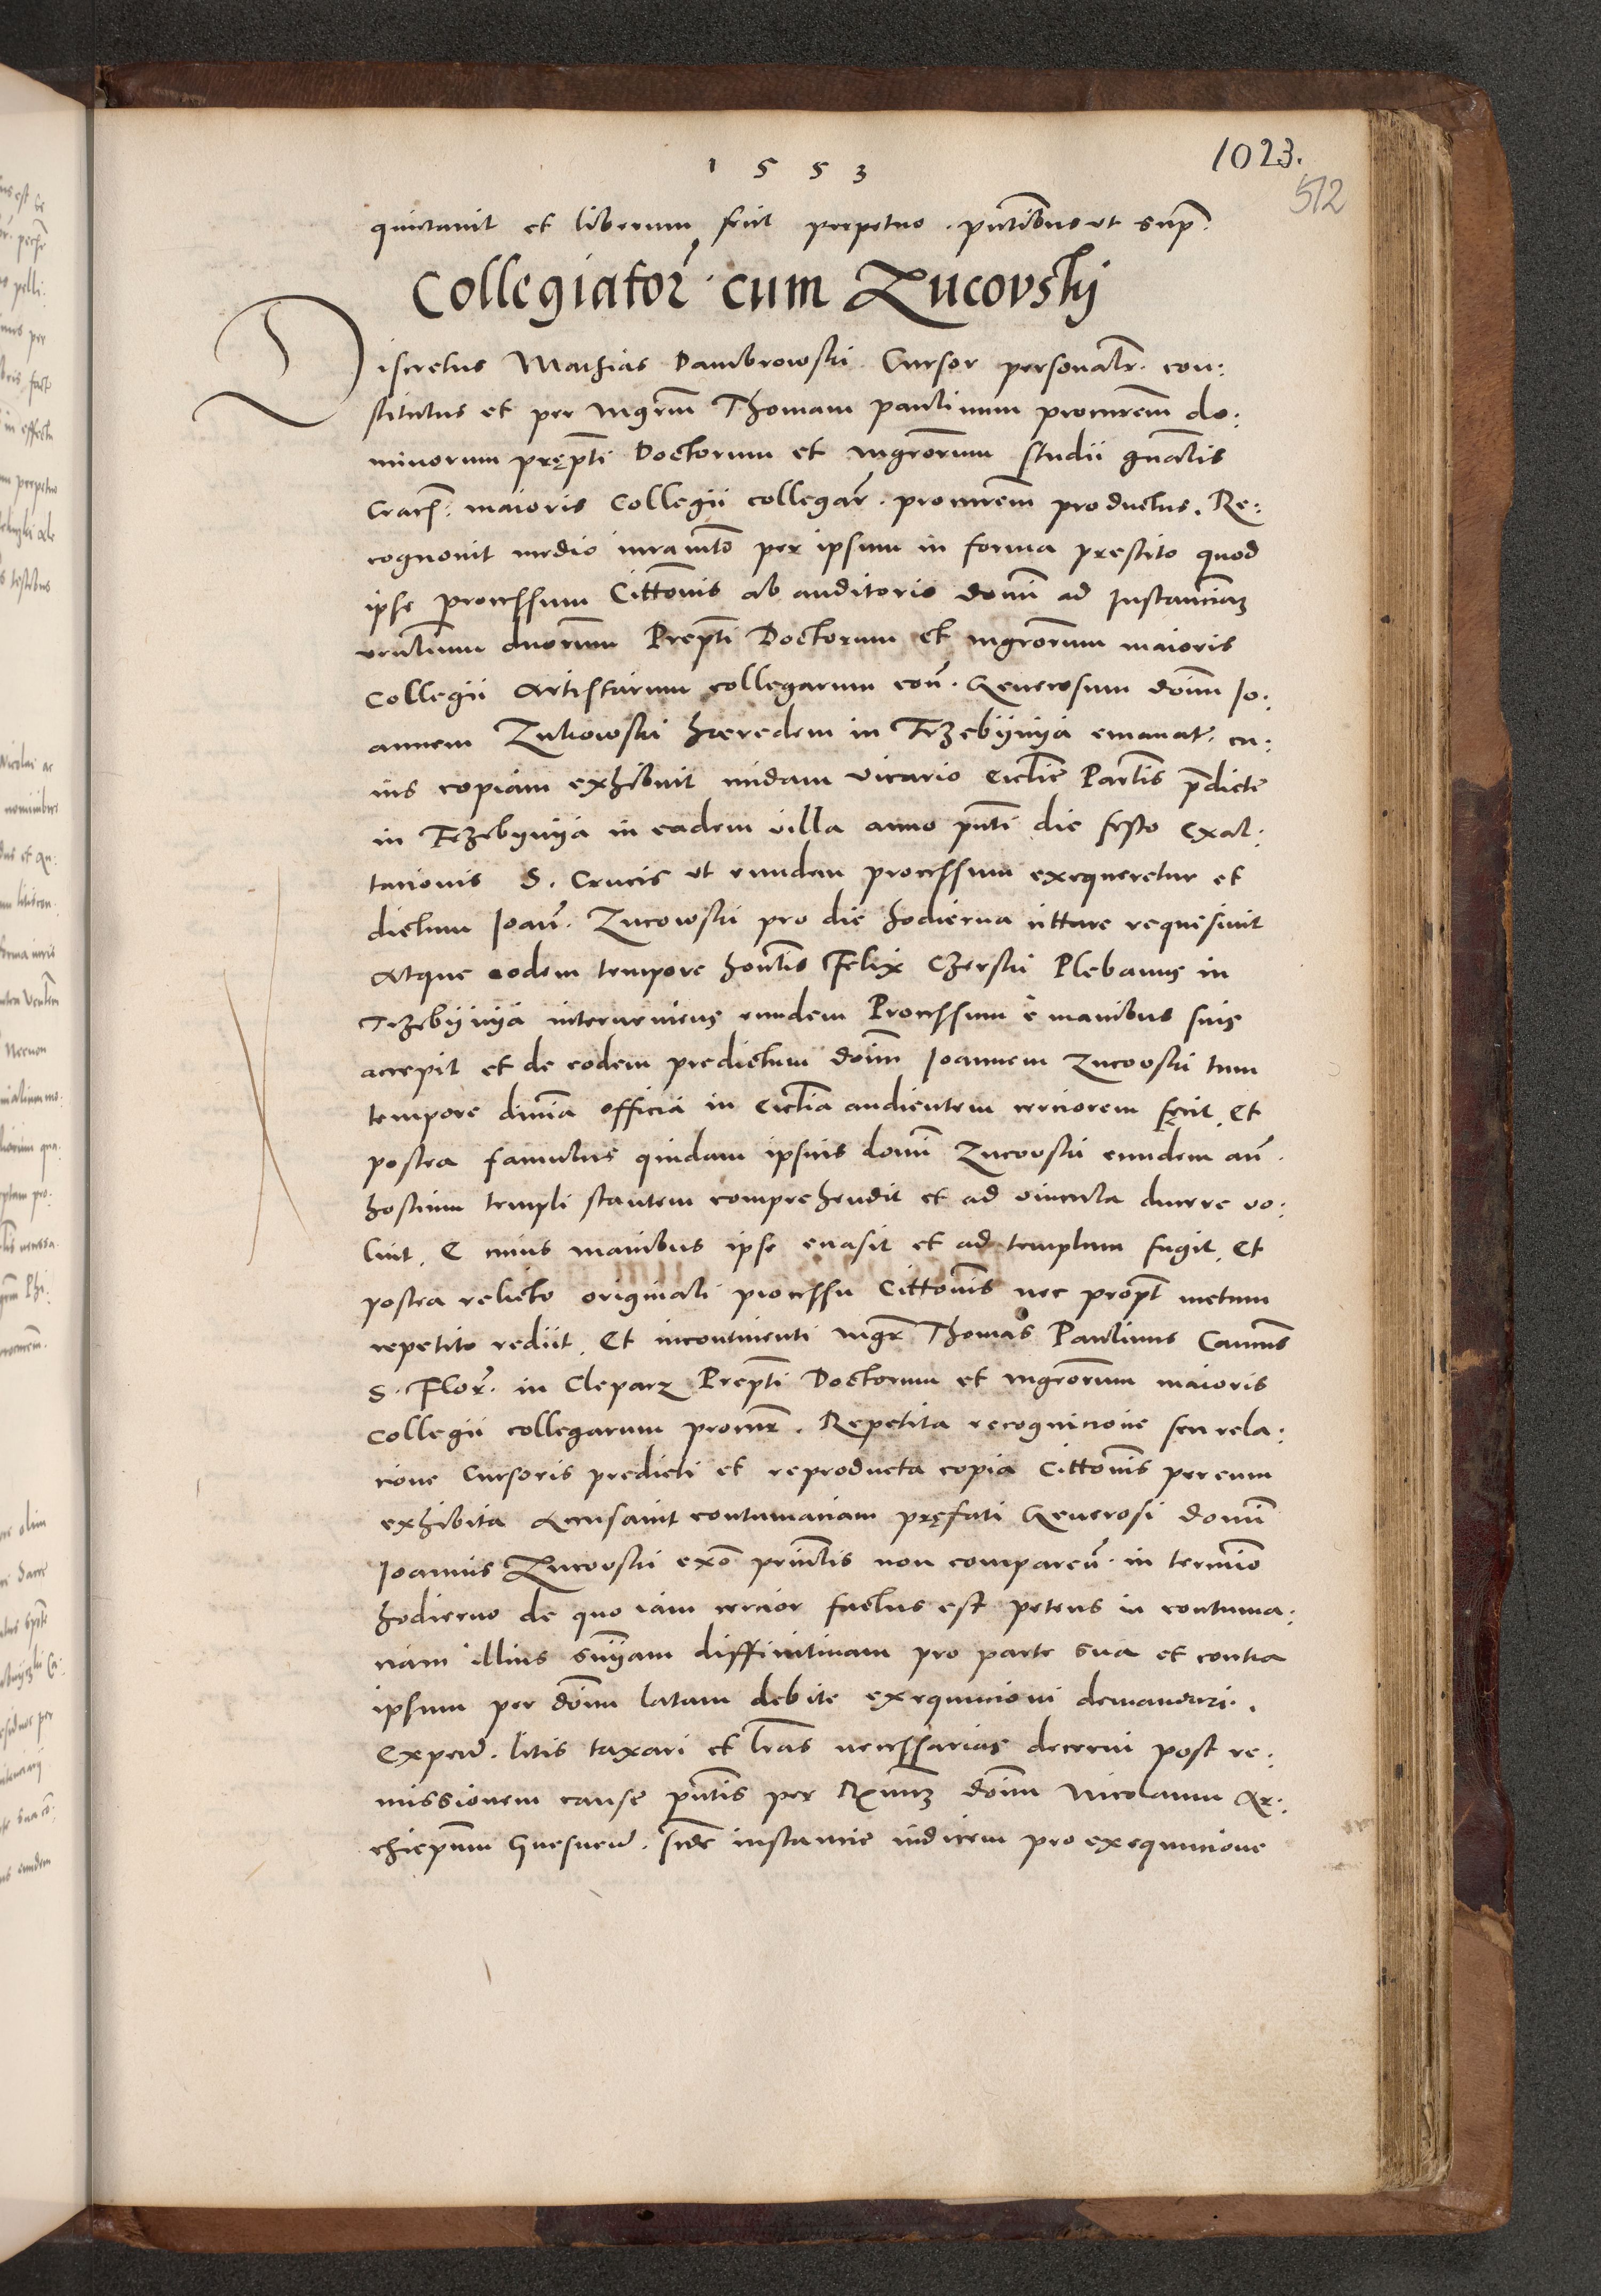 1023.
1 5 5 3
512
quictavit et liberum fecit perpetuo. pn̄tibus ut sup̄.
Collegiator̄. cum Zucovskij
Discretus Mathias Dambrowski Cursor personalr̄. con:
stitutus et per mgrm̄ Thomam paulinum procurem̄ do:
minorum pręptī Doctorum et mgror̄um studii gn̄alis
Crac̄. maioris Collegii collegar̄. procurem̄ productus. Re:
cognovit medio iuramt̄o per ipsum in forma prestito quod
ipse processum Cittōnis ab auditorio domī ad Instanciam
ven̄lium dn̄orum Preptī Doctorum et mgror̄um maioris
Collegii Artistarum collegarum con̄. Generosum doīm Io:
annem Zukowski hæredem in Trzebijnija emanat̄. cu:
ius copiam exhibuit cuidam vicario Ecclīe Parl̄is p̄dicte
in Trzebynija in eadem villa anno pn̄ti die festo Exal:
tacionis S. Crucis ut eundem processum exequeretur et
dictum Ioan̄. Zucowski pro die hodierna cittare requesivit
Atque eodem tempore hon̄lis Felix Czerski Plebanus in
Trzebijnija interveniens eundem Processum è manibus suis
accepit et de eodem predictum doīm Ioannem Zucovski tum
tempore divīa officia in Ecclīa audientem cerciorem fęcit. Et
postea famulus quidam ipsius domī Zucovski eundem an̄.
hostium templi stantem comprehendit et ad vincula ducere vo:
luit. E cuius manibus ipse evasit et ad templum fugit. Et
postea relicto originali processu Cittōnis nec propt̄ metum
repetito rediit. Et incontinenti mgr̄ Thomas Paulinus Canc̄us
S. Flor̄. in Cleparz Preptī Doctorum et mgror̄um maioris
Collegii collegarum procur̄. Repetita recognicione seu rela:
cione Cursoris predicti et reproducta copia Cittōnis per eum
exhibita Accusavit contumaciam pręfati Generosi domī
Ioannis Zucovski ex̄o princ̄lis non comparen̄. in termīo
hodierno de quo iam cercior factus est petens in contuma:
ciam illius sn̄iam diffinitivam pro parte sua et contra
ipsum per doīm latam debite exequucioni demandari.
Expen̄. litis taxari et lr̄as necessarias decerni post re:
missionem cause pn̄tis per Rm̄um doīm Nicolaum Ar:
chiepūm Gnesnen̄. sc̄de instancie iudicem pro exequucione